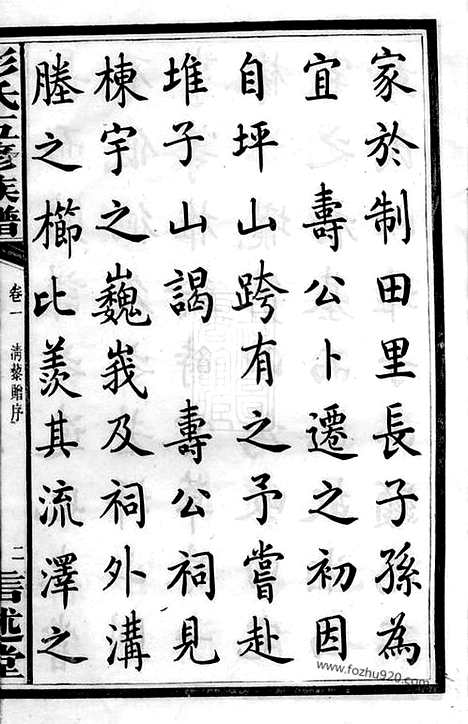 家於制田里長子孫為
宜 壽公卜遷之初因
自坪山跨有之予嘗赴
堆子山謁 壽公祠見
棟宇之巍峩及祠外溝
塍之櫛比羨其流澤之
彭氏五修族譜
卷一 清藜贈序 二
言述堂
www.fozhu920.com